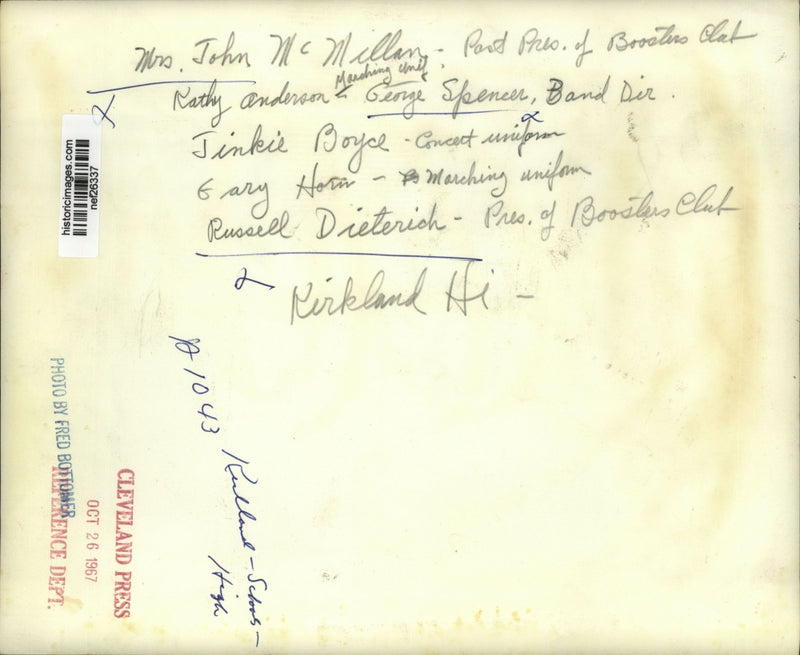 Mrs. John McMillan - Past Pres. of Boosters Club
Marching Unif.
Kathy Anderson - George Spencer, Band Dir.
Jinkie Boyce - Concert uniform
Gary Horn - Marching uniform
Russell Dieterich - Pres. of Boosters Club
Kirkland Hi -
historicimages.com
nef26337
A 1043 Kirkland - Schools -
High
PHOTO BY FRED BOTTOMER
CLEVELAND PRESS
OCT 26 1967
REFERENCE DEPT.